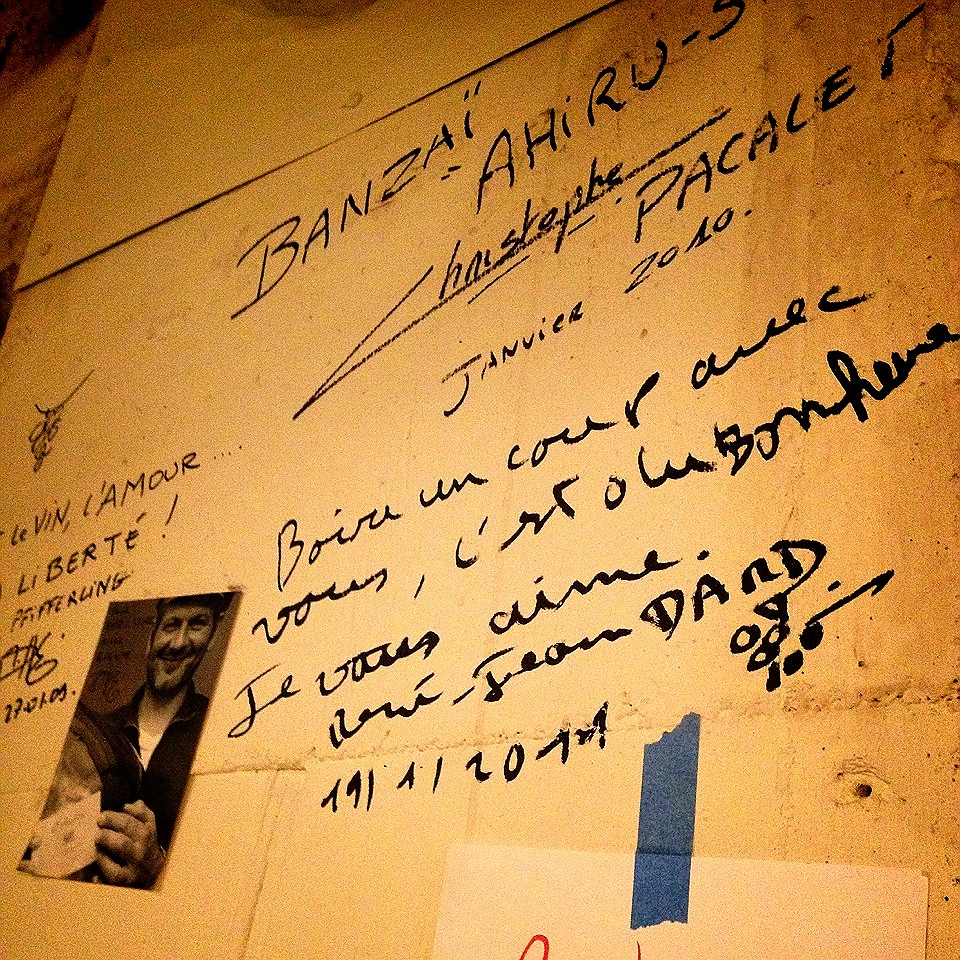 BANZAÏ
- AHIRU-S
Christophe PACALET
JANVIER 2010.
LE VIN, L'AMOUR ....
LIBERTÉ !
PFIFFERLING
27.01.09.
Boire un coup avec
vous, c'est du Bonheur
Je vous aime.
René-Jean DARD
19/1/2011